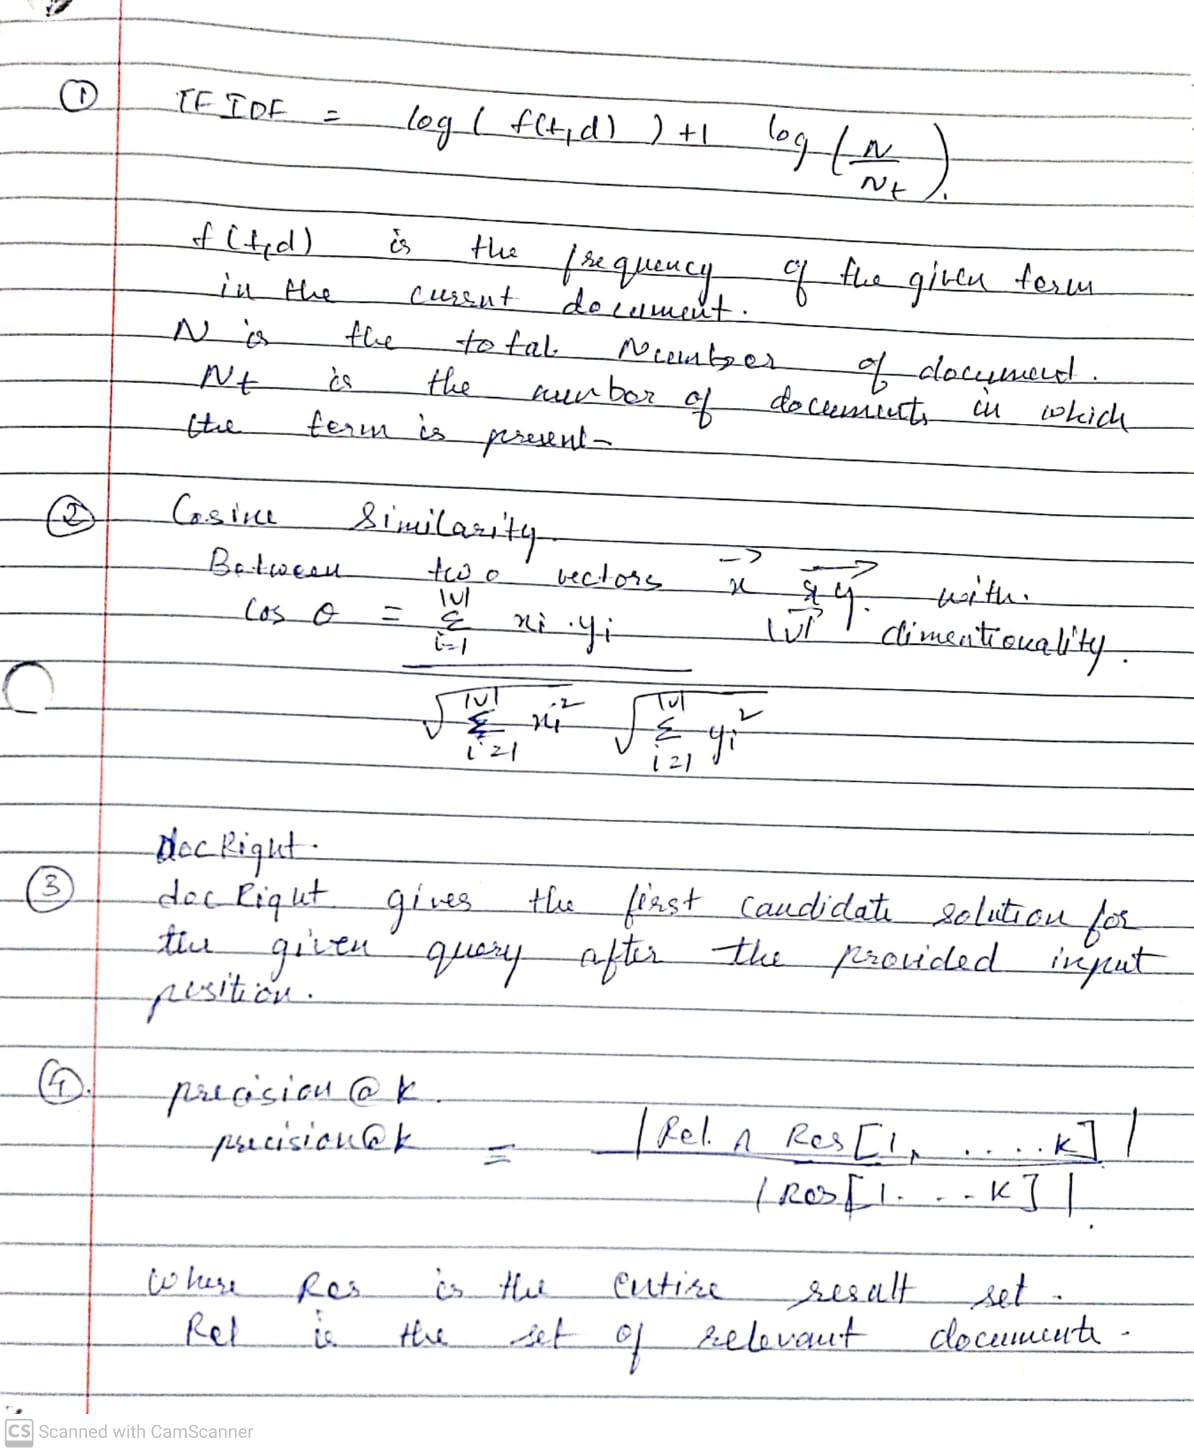 ① TF IDF = log ( f(t,d) ) +1 log (N/Nt).
f(t,d) is the frequency of the given term
in the current document.
N is the total Number of document.
Nt is the number of documents in which
the term is present-
② Cosine Similarity.
Between two vectors x⃗ & y⃗. with
|V| dimentionality.
Cos θ = Σ_{i=1}^{|V|} xi . yi / √(Σ_{i=1}^{|V|} xi²) √(Σ_{i=1}^{|V|} yi²)
Doc Right.
③ doc Right gives the first candidate solution for
the given query after the provided input
position.
④. precision @ k.
precision@k = |Rel ∩ Res[1, .....k]| / |Res[1...k]|.
Where Res is the entire result set.
Rel is the set of relevant documents.
CS Scanned with CamScanner